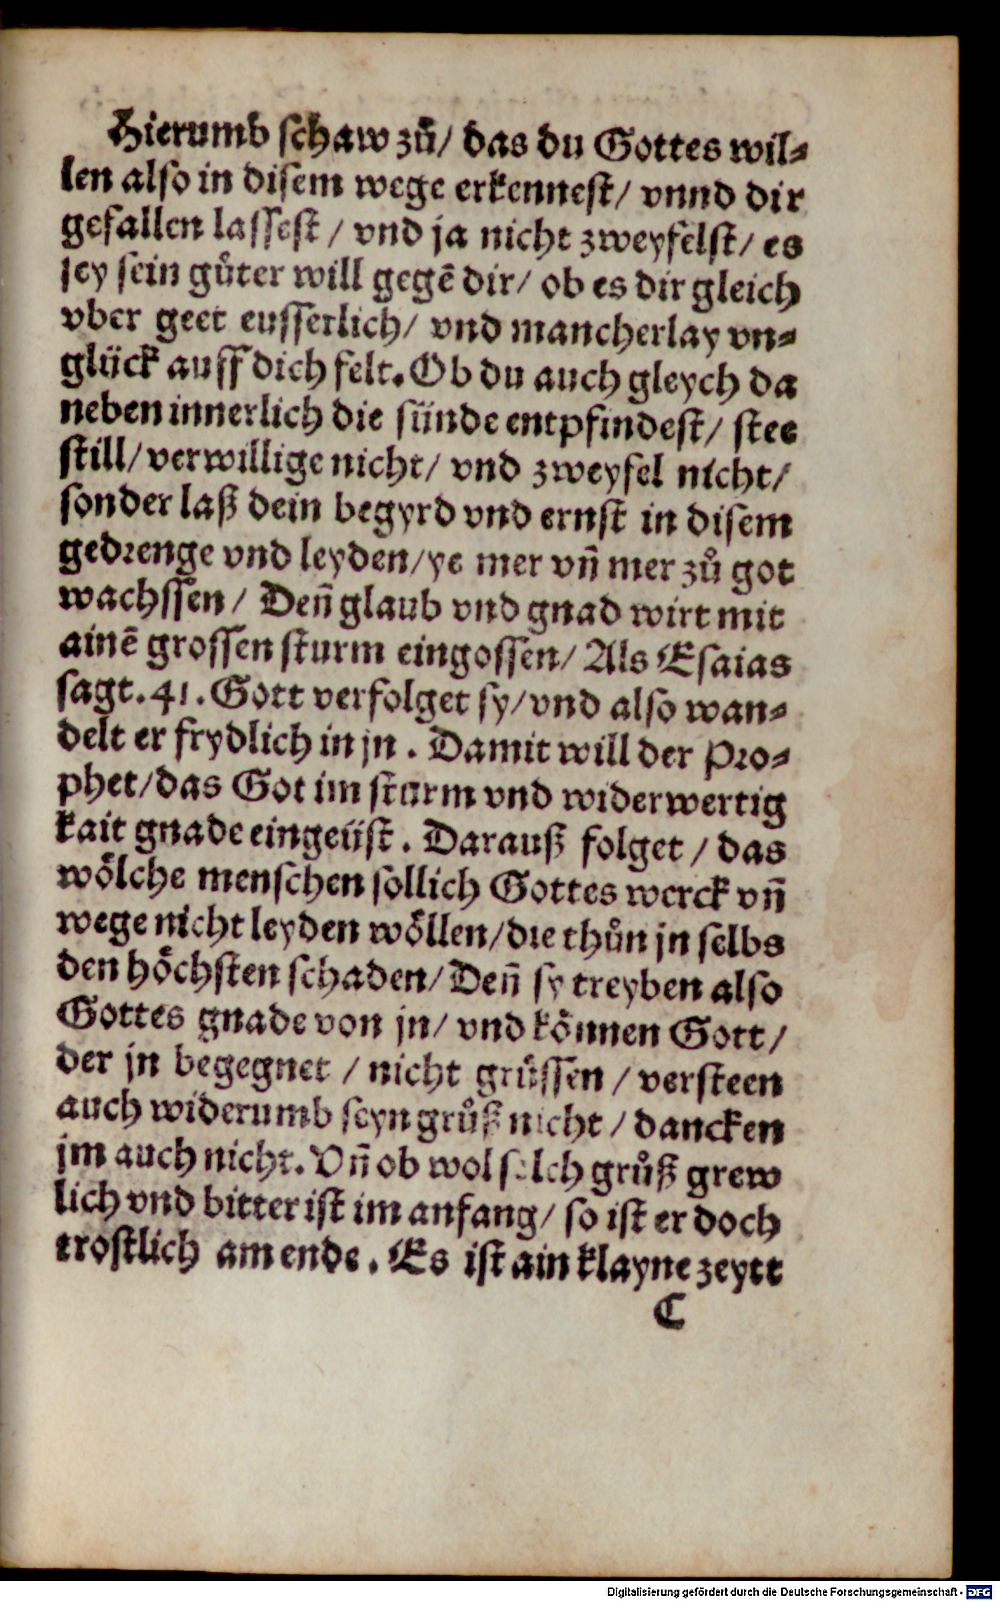 Hierumb schaw zů/ das du Gottes wil-
len also in disem wege erkennest/ vnnd dir
gefallen lassest / vnd ja nicht zweyfelst/ es
sey sein gůter will gegē dir/ ob es dir gleich
vber geet eusserlich/ vnd mancherlay vn-
glück auff dich felt. Ob du auch gleych da
neben innerlich die sünde entpfindest/ stee
still/ verwillige nicht/ vnd zweyfel nicht/
sonder laß dein begyrd vnd ernst in disem
gedrenge vnd leyden/ ye mer vñ mer zů got
wachssen / Deñ glaub vnd gnad wirt mit
ainē grossen sturm eingossen/ Als Esaias
sagt. 41. Gott verfolget sy/ vnd also wan-
delt er frydlich in jn . Damit will der Pro-
phet/ das Got im sturm vnd widerwertig
kait gnade eingeüst . Darauß folget / das
wölche menschen sollich Gottes werck vñ
wege nicht leyden wöllen/ die thůn jn selbs
den höchsten schaden/ Deñ sy treyben also
Gottes gnade von jn/ vnd können Gott/
der jn begegnet / nicht grüssen / versteen
auch widerumb seyn grůß nicht / dancken
jm auch nicht. Vñ ob wol solch grůß grew
lich vnd bitter ist im anfang/ so ist er doch
trostlich am ende . Es ist ain klayne zeytt
C
Digitalisierung gefördert durch die Deutsche Forschungsgemeinschaft - DFG